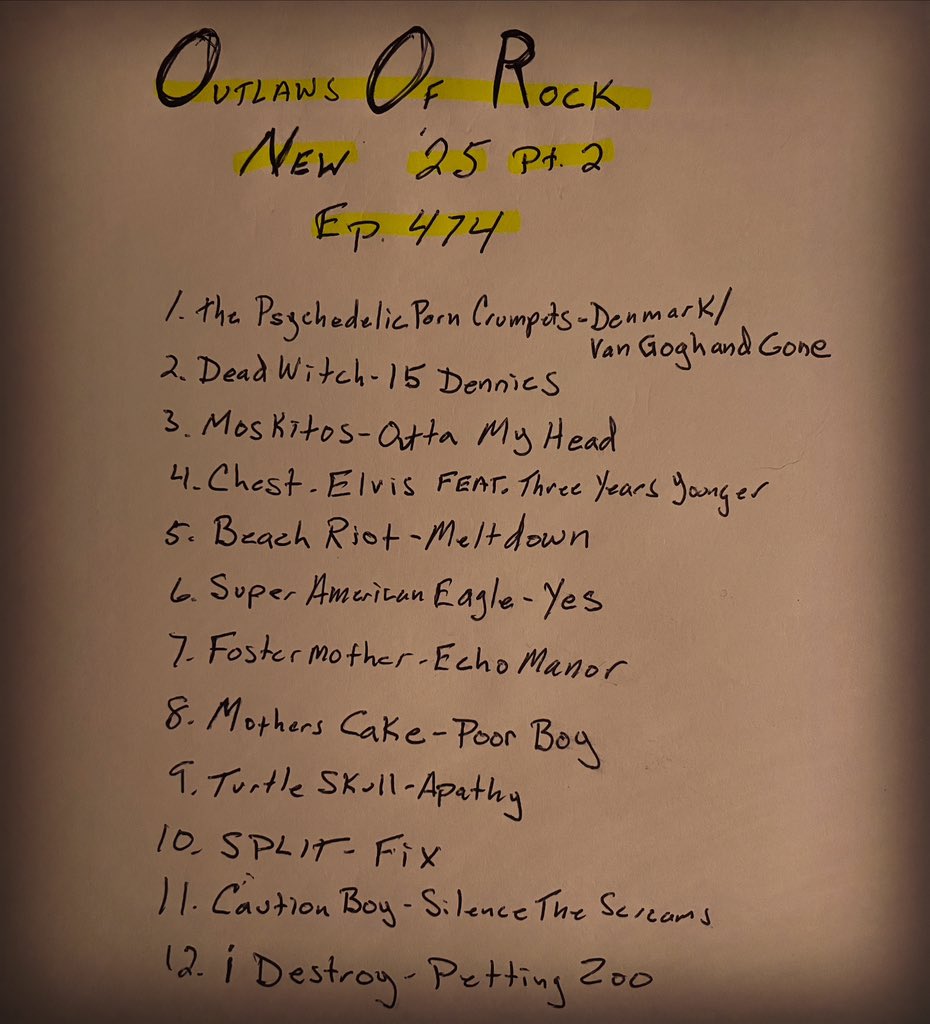 Outlaws Of Rock
New '25 Pt. 2
Ep. 474
1. the Psychedelic Porn Crumpets - Denmark/
Van Gogh and Gone
2. Dead Witch - 15 Dennies
3. Moskitos - Outta My Head
4. Chest. - Elvis FEAT. Three Years Younger
5. Beach Riot - Meltdown
6. Super American Eagle - Yes
7. Foster mother - Echo Manor
8. Mothers Cake - Poor Boy
9. Turtle Skull - Apathy
10. SPLIT - Fix
11. Caution Boy - Silence The Screams
12. i Destroy - Petting Zoo